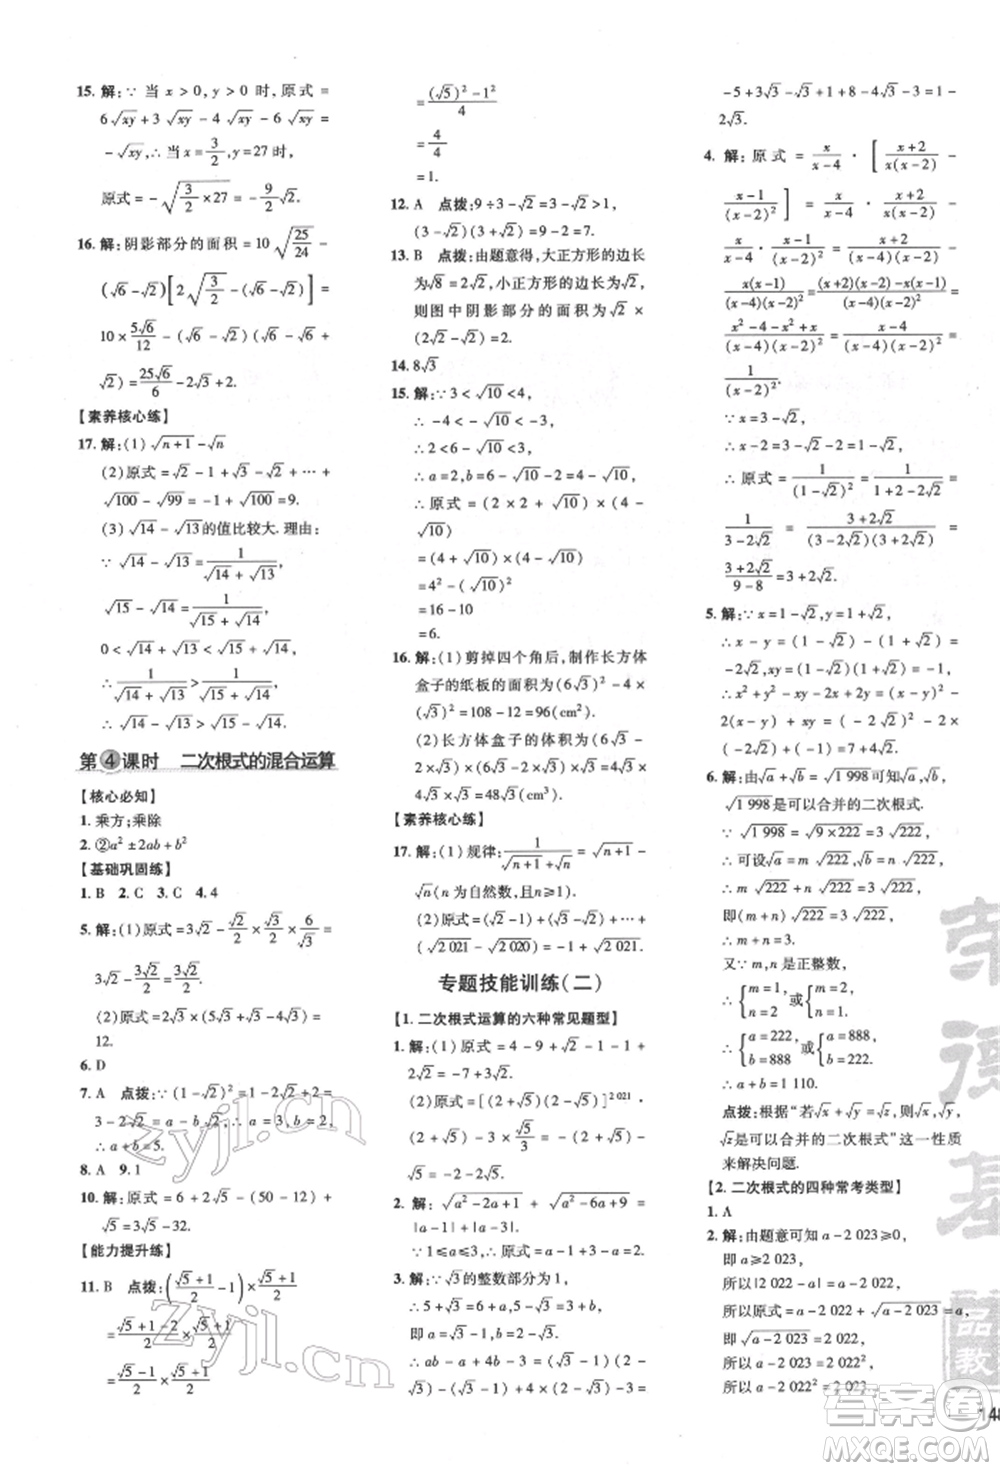 15. 解:∵当 x>0, y>0 时,原式=
6√xy+3√xy-4√xy-6√xy=
-√xy,∴当 x=3/2,y=27时,
原式=-√(3/2×27)=-9/2√2.
16. 解:阴影部分的面积=10√(25/24)-
(√6-√2)[2√(3/2)-(√6-√2)]=
10×5√6/12-(√6-√2)(√6-√6+
√2)=25√6/6-2√3+2.
【素养核心练】
17. 解:(1)√(n+1)-√n
(2)原式=√2-1+√3-√2+…+
√100-√99=-1+√100=9.
(3)√14-√13的值比较大.理由:
∵√14-√13=1/(√14+√13),
√15-√14=1/(√15+√14),
0<√14+√13<√15+√14,
∴1/(√14+√13)>1/(√15+√14),
∴√14-√13>√15-√14.
第4课时 二次根式的混合运算
【核心必知】
1. 乘方;乘除
2. ②a²±2ab+b²
【基础巩固练】
1. B 2. C 3. C 4. 4
5. 解:(1)原式=3√2-√2/√3×√3/2×6/√3=
3√2-3√2/2=3√2/2.
(2)原式=2√3×(5√3+√3-4√3)=
12.
6. D
7. A 点拨:∵(1-√2)²=1-2√2+
2=3-2√2=a-b√2,∴a=3,b=2,
∴a+b=5.
8. A 9. 1
10. 解:原式=6+2√5-(50-12)+
√5=3√5-32.
【能力提升练】
11. B 点拨:((√5+1)/2-1)×(√5+1)/2
=(√5+1-2)/2×(√5+1)/2
=(√5-1)/2×(√5+1)/2
=((√5)²-1²)/4
=4/4
=1.
12. A 点拨:9÷3-√2=3-√2>1,
(3-√2)(3+√2)=9-2=7.
13. B 点拨:由题意得,大正方形的边长
为√8=2√2,小正方形的边长为√2,
则图中阴影部分的面积为√2×
(2√2-√2)=2.
14. 8√3
15. 解:∵3<√10<4,
∴-4<-√10<-3,
∴2<6-√10<3,
∴a=2,b=6-√10-2=4-√10,
∴原式=(2×2+√10)×(4-
√10)
=(4+√10)×(4-√10)
=4²-(√10)²
=16-10
=6.
16. 解:(1)剪掉四个角后,制作长方体
盒子的纸板的面积为(6√3)²-4×
(√3)²=108-12=96(cm²).
(2)长方体盒子的体积为(6√3-
2√3)×(6√3-2√3)×√3=4√3×
4√3×√3=48√3(cm³).
【素养核心练】
17. 解:(1)规律:1/(√(n+1)+√n)=√(n+1)-
√n(n为自然数,且n≥1).
(2)原式=(-√1+√2)+…+
(-√2 021-√2 020)=-1+√2 021.
专题技能训练(二)
【1. 二次根式运算的六种常见题型】
1. 解:(1)原式=4-9+√2-1+√2=
2√2-6.
(2)原式=[(√5+2)(√5-2)]^2 021·
(2+√5)-√5/3×3/√5=(2+√5)-
√5=2.
2. 解:√(a²-2a+1)+√(a²-6a+9)=
|a-1|+|a-3|.
∵1≤a≤3,∴原式=a-1+3-a=2.
3. 解:∵√3的整数部分为1,
∴5+√3的小数部分为√3-1,
即a=√3-1.
∴5-√3的整数部分为3,
即b=3.
∴ab-a+4b-3=3(√3-1)-(√3-
1)+4×3-3=3√3-3-√3+1+12-
-5+3√3-√3+1+8-4√3-5=-1-
2√3.
4. 解:原式=x/(x-4)·[(x+2)/(x(x-2))-
(x-1)/(x-2)²]=x/(x-4)·(x+2)/(x(x-2))-
x/(x-4)·(x-1)/(x-2)²=(x+2)/((x-4)(x-2))-
x(x-1)/((x-4)(x-2)²)=((x+2)(x-2)-x(x-1))/((x-4)(x-2)²)=
(x²-4-x²+x)/((x-4)(x-2)²)=(x-4)/((x-4)(x-2)²)=
1/(x-2)².
∵x=3-√2,
∴x-2=3-√2-2=1-√2,
∴原式=1/(1-√2)²=1/(1-2√2+2)=
1/(3-2√2)=(3+2√2)/((3-2√2)(3+2√2))=
(3+2√2)/(9-8)=3+2√2.
5. 解:∵x=1-√2,y=1+√2,
∴x-y=(1-√2)-(1+√2)=
-2√2,xy=(1-√2)(1+√2)=-1,
∴x²+y²-xy-2x+2y=(x-
y)²-2(x-y)+xy=(-2√2)²-
2×(-2√2)-1=7+4√2.
6. 解:由√a+√b=√1 998知√a,√b,
√1 998是可以合并的二次根式.
∵√1 998=√(9×222)=3√222,
∴可设√a=m√222,√b=n√222,
∴m√222+n√222=3√222,
即(m+n)√222=3√222,
∴m+n=3.
又∵m,n是正整数,
∴{m=1, n=2 或{m=2, n=1.
∴{a=222, b=888 或{a=888, b=222.
∴a+b=1 110.
点拨:根据“若√x+√y=√z,则√x,√y,
√z是可以合并的二次根式”这一性质
来解决问题.
【2. 二次根式的四种常考类型】
1. A
2. 解:由题意可知a-2 023≥0,
即a≥2 023,
所以|2 022-a|=a-2 022,
所以原式=a-2 022+√(a-2 023)=a,
所以√(a-2 023)=2 022,
即a-2 023=2 022²,
所以a-2 022²=2 023.
zyjl.cn
zyjl.cn
荣德基
品教
答案卷
MXQE.COM
148